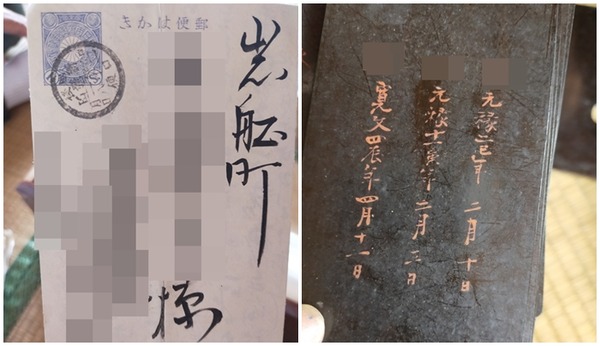 郵便はかき
岩船町
様
元禄二巳年 二月十日
元禄十一寅年 二月三日
寛文四辰年 四月十一日